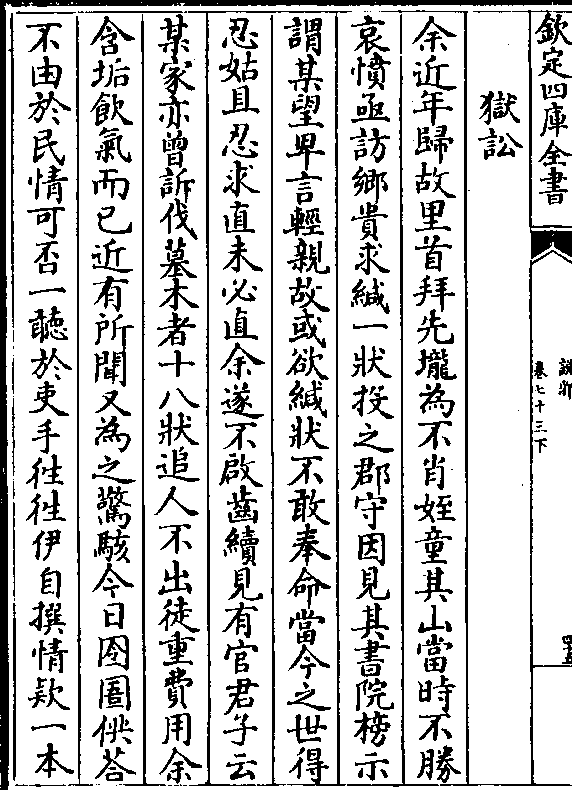 欽定四庫全書
說郛
卷七十三下
獄訟
余近年歸故里首拜先壠為不肖姪童其山當時不勝
哀憤亟訪鄉貴求緘一狀投之郡守因見其書院榜示
謂某望卑言輕親故或欲緘狀不敢奉命當今之世得
忍姑且忍求直未必直余遂不啟齒續見有官君子云
某家亦曾訴伐墓木者十八狀追人不出徒重費用余
含垢飲氣而已近有所聞又為之驚駭今日囹圄供荅
不由於民情可否一聽於吏手徃徃伊自撰情欵一本